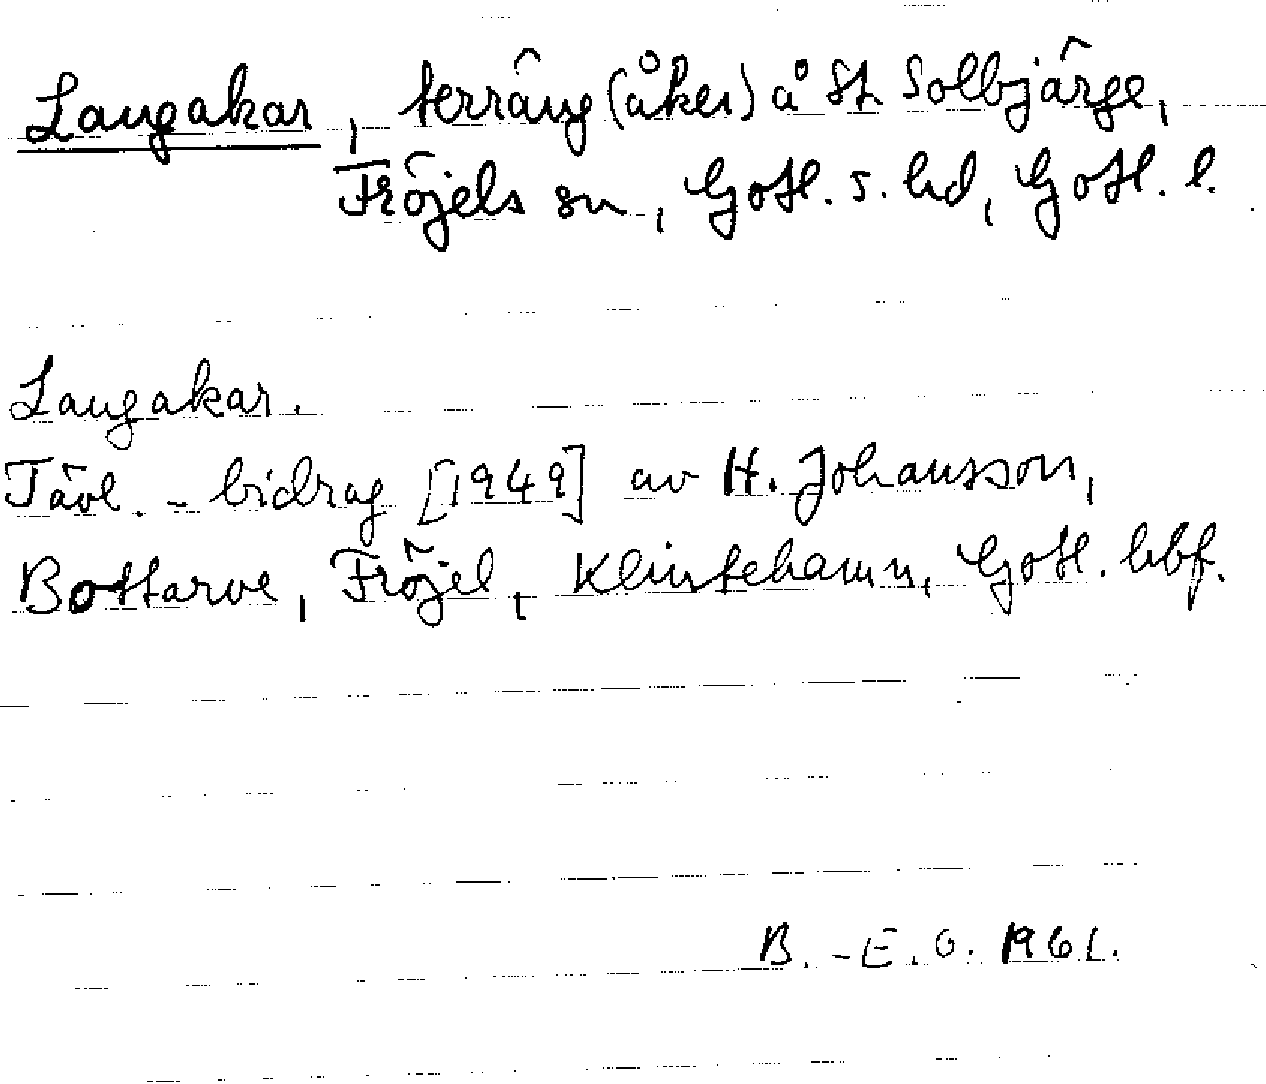 Langakar, terräng (åker) å St. Solbjärge,
Fröjels sn, Gotl. s. hd, Gotl. l.
Langakar.
Tävl. - bidrag [1949] av H. Johansson,
Bottarve, Fröjel, Klintehamn, Gotl. hbf.
B. - E. O. 1961.